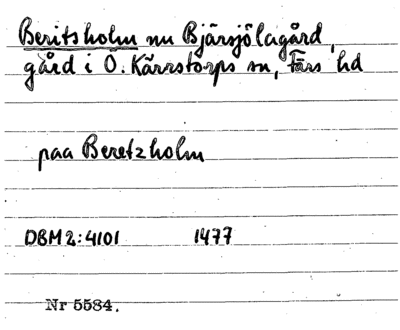 Beritsholm nu Bjärsjölagård,
gård i Ö. Kärrstorps sn, Färs hd
paa Beretzholm
DBM 2:4101 1477
Nr 5584.